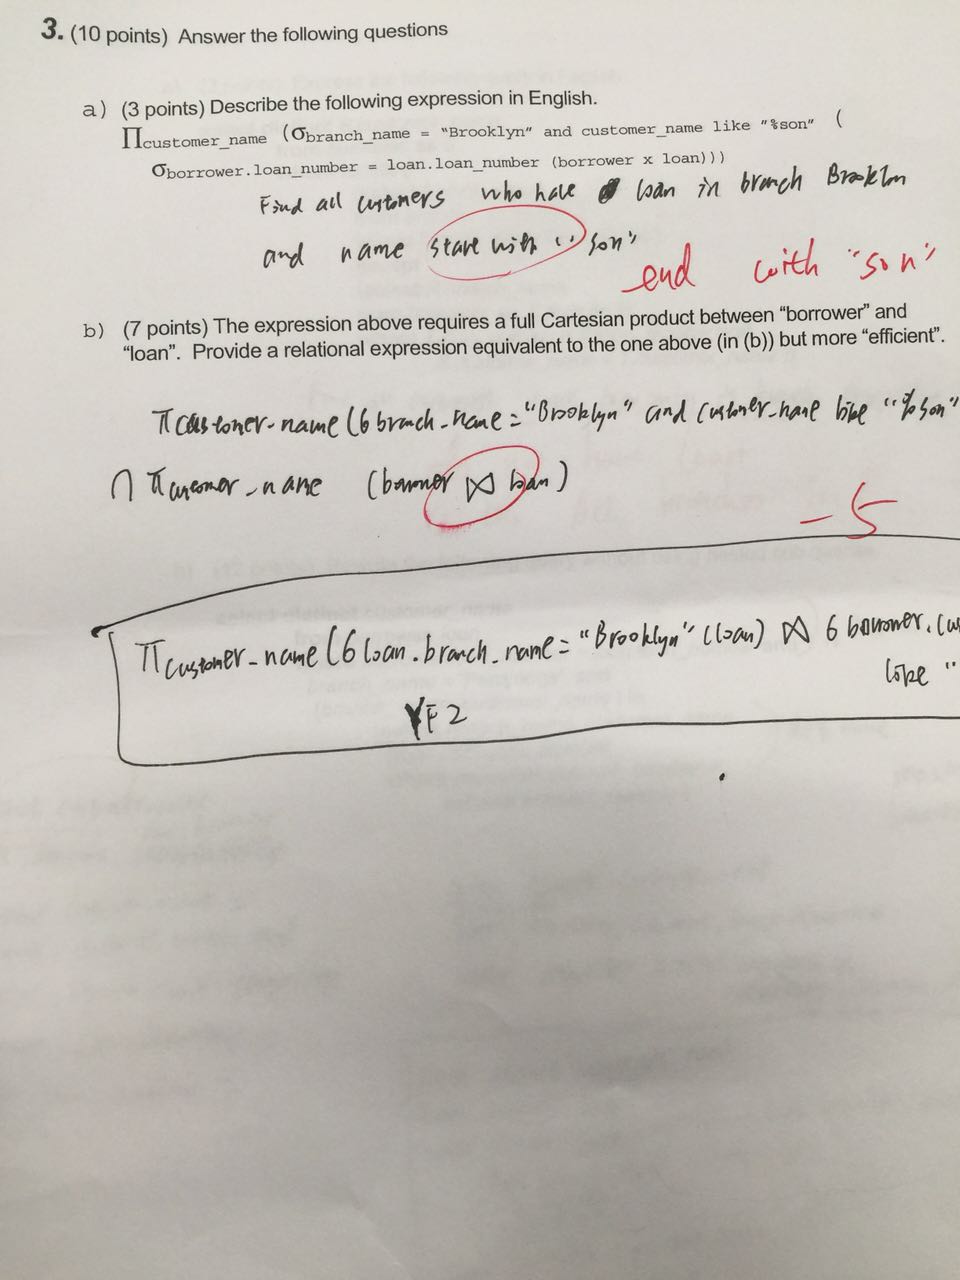 3. (10 points) Answer the following questions
a) (3 points) Describe the following expression in English.
∏customer_name (σbranch_name = "Brooklyn" and customer_name like "%son" (
σborrower.loan_number = loan.loan_number (borrower x loan)))
Find all customers who have loan in branch Brooklm
and name start with "son"
end with "son"
b) (7 points) The expression above requires a full Cartesian product between “borrower” and
“loan”. Provide a relational expression equivalent to the one above (in (b)) but more “efficient”.
π customer-name (6 branch-name = "Brooklyn" and customer-name like "%son"
∩ π customer-name (borrower ⋈ loan)
-5
π customer-name (6 loan.branch-name = "Brooklyn" (loan) ⋈ 6 borrower.cus
like "